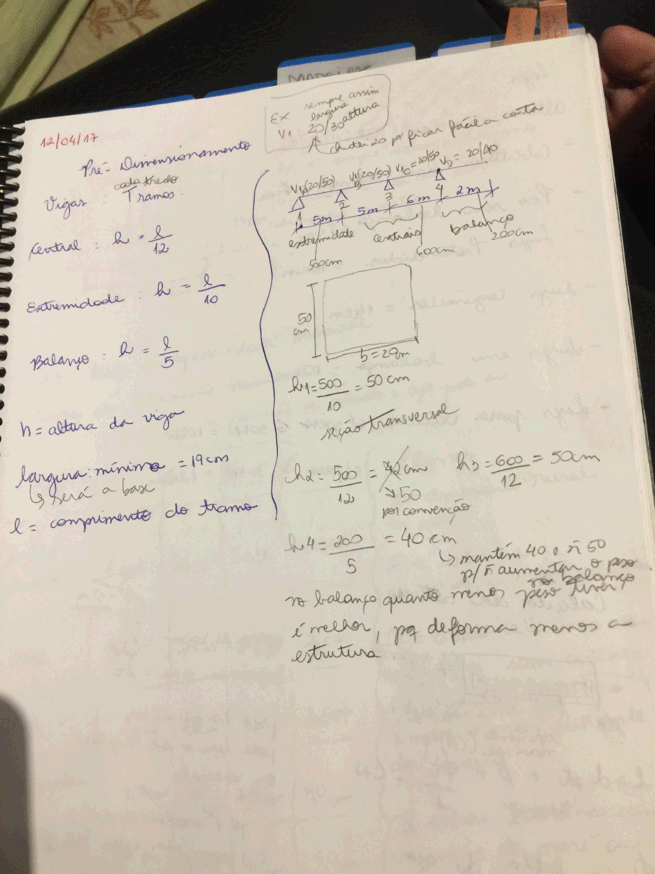 12/04/17
Pré-Dimensionamento
cada trecho
Vigas: Tramos:
Central: h = l/12
Extremidade: h = l/10
Balanço: h = l/5
h = altura da viga
largura mínima = 19cm
↳ será a base
l = comprimento do tramo
EX sempre assim
largura
V1: 20/30 altura
dividi 20 p/ ficar fácil a conta
V1A(20/50) V1B(20/50) V1C=20/50 V1D=20/40
1 2 3 4
5m 5m 6m 2m
extremidade centrais balanço
500cm 600cm 200cm
50 cm
b=20cm
h1=500/10=50cm
seção transversal
h2=500/12=42cm h3=600/12=50cm
↳50
por convenção
h4=200/5=40cm
↳ mantém 40 e ñ 50
p/ ñ aumentar o peso
no balanço
no balanço quanto menos peso tiver
é melhor, pq deforma menos a
estrutura